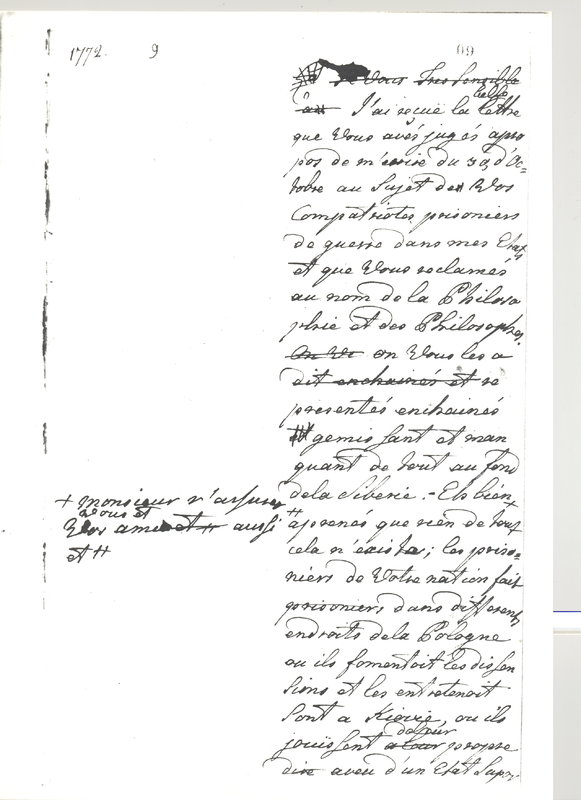 1772. 9 99
je Vous Tres sensible
J'ai reçue la belle lettre
que Vous avés jugés apro
pos de m'ecrire du 30 d'Oc=
tobre au Sujet de Vos
Compatriotes prisoniers
de guerre dans mes Etats
et que Vous reclamés
au nom de la Philoso
phie et des Philosophes.
on Vous les a
dit enchainés et re
presentés enchainés
gemissant et man
quant de tout au fond
de la Siberie. - Eh bien +
+ Monsieur r'assurés
Vous et
Vos amis et # aussi
et #
# aprenés que rien de tout
cela n'existe; les priso=
niers de Votre nation fait
prisoniers dans differents
endroits de la Pologne
ou ils fomentoit les dissen
sions et les entretenoit
sont a Kiovie, ou ils
jouissent de leur propre
dire aveu d'un Etat supor